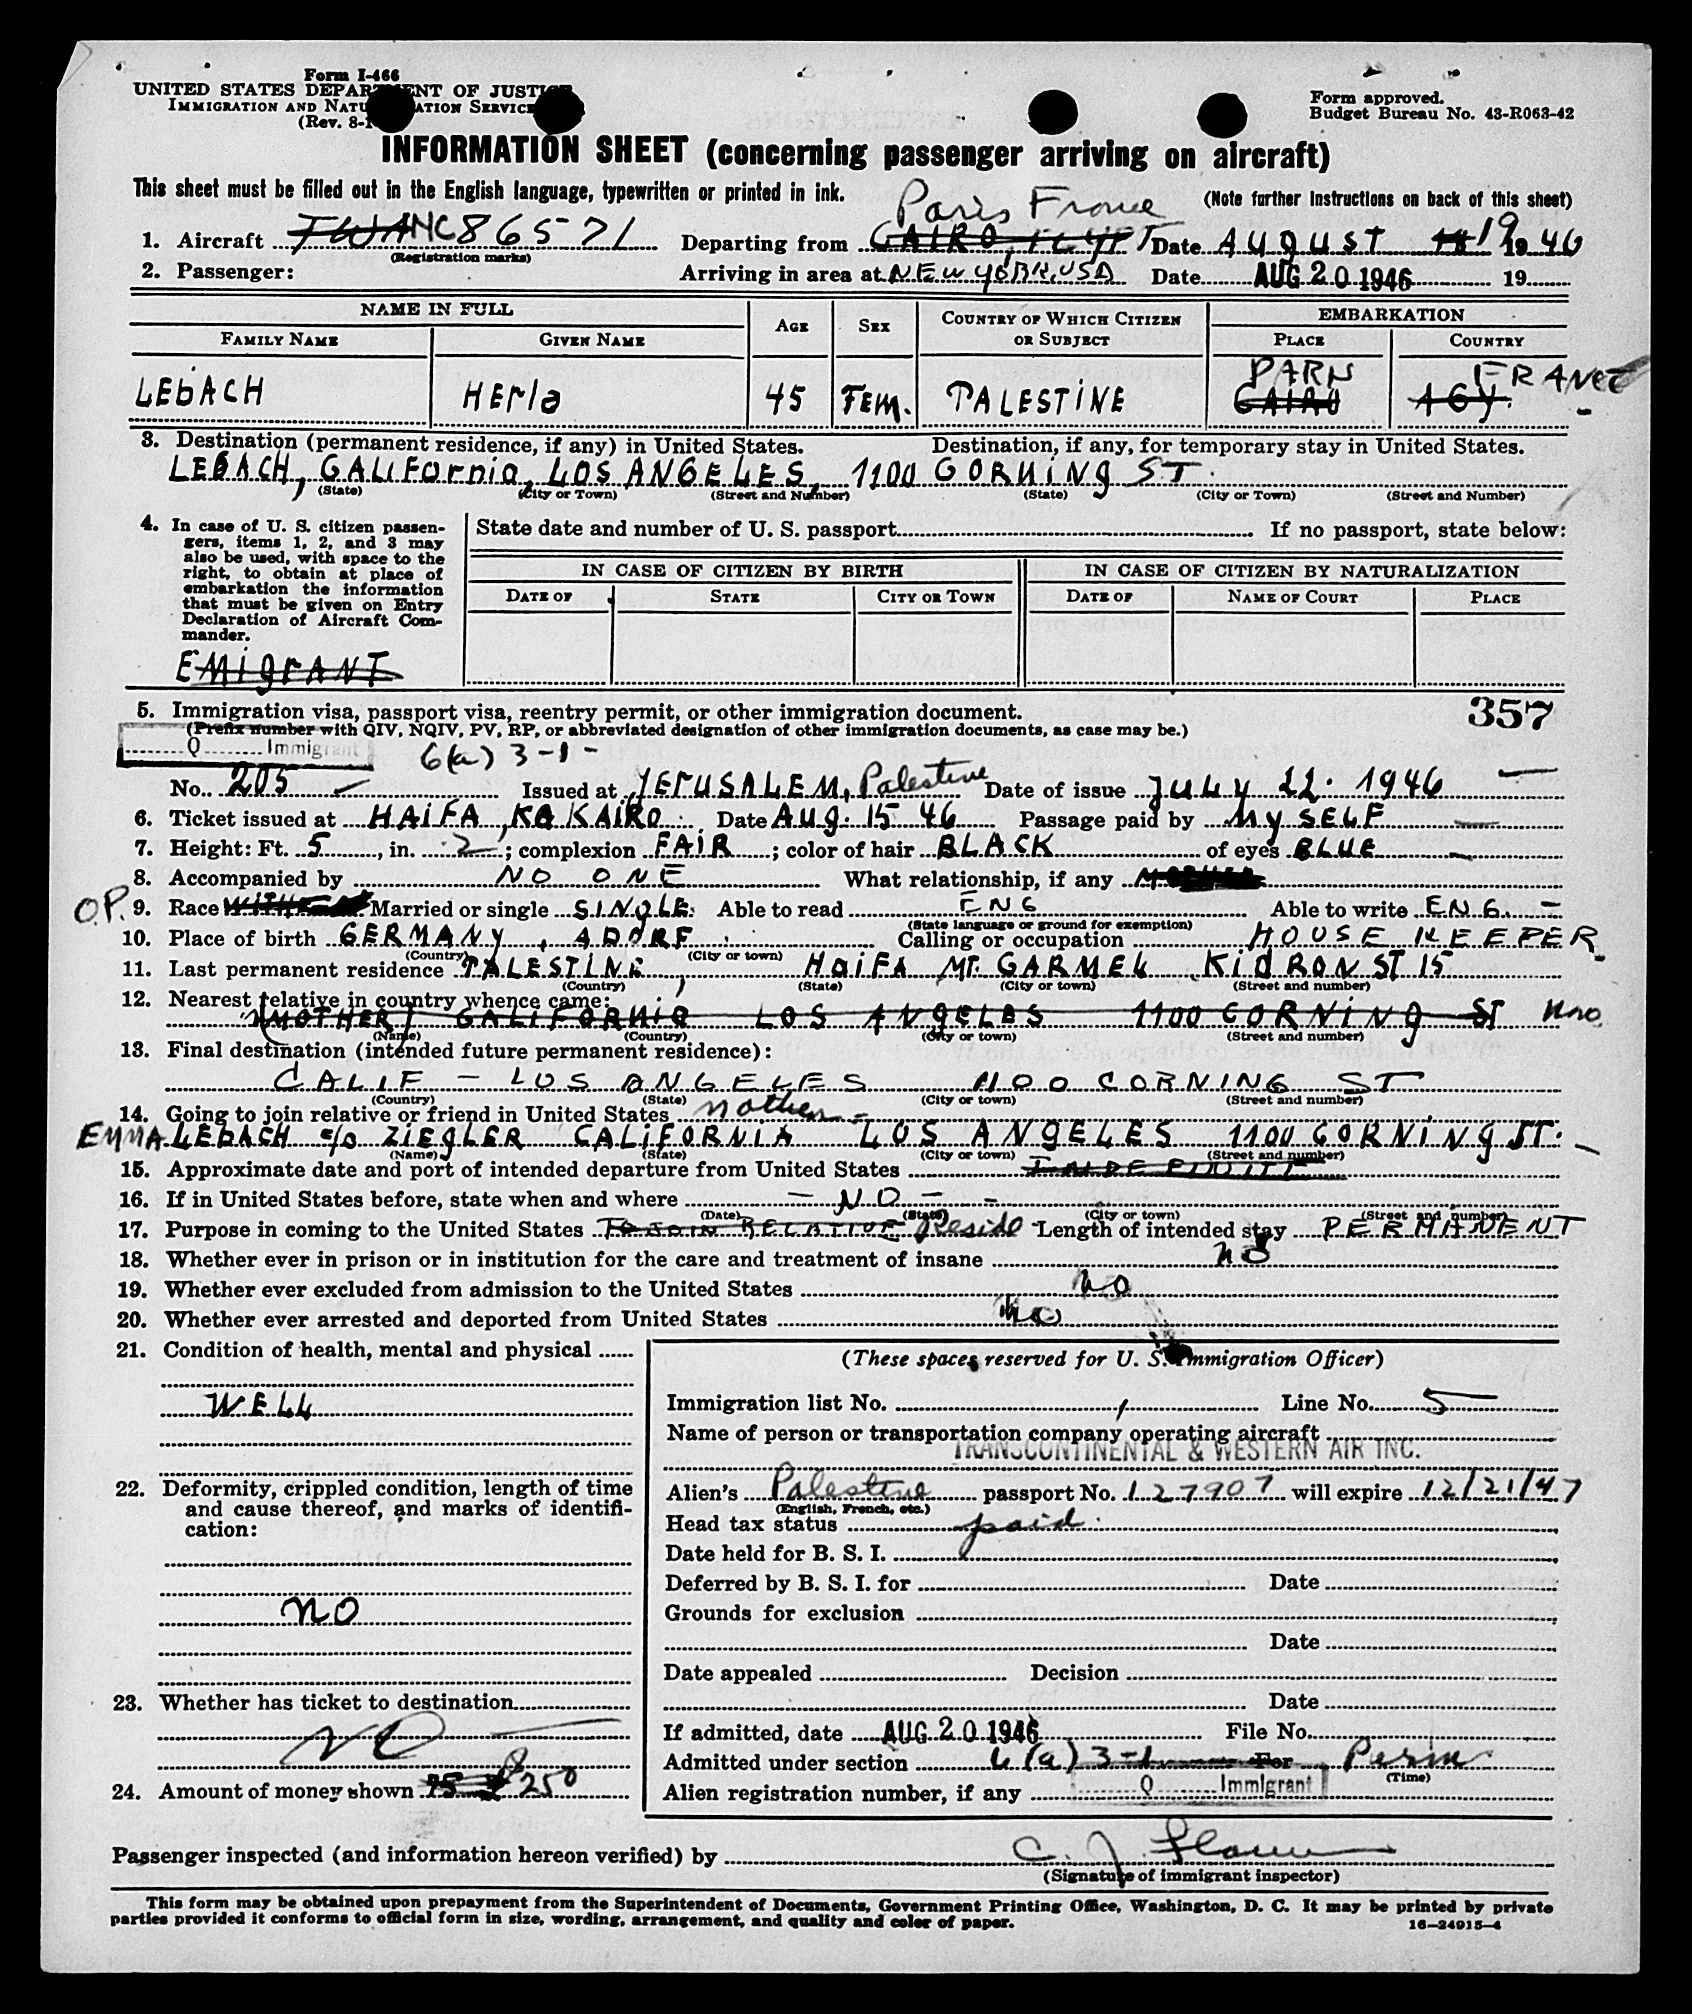 Form I-466
UNITED STATES DEPARTMENT OF JUSTICE
IMMIGRATION AND NATURALIZATION SERVICE
(Rev. 8-1
Form approved.
Budget Bureau No. 43-R063-42
INFORMATION SHEET (concerning passenger arriving on aircraft)
This sheet must be filled out in the English language, typewritten or printed in ink.
(Note further Instructions on back of this sheet)
Paris France
1. Aircraft TWA NC86571 Departing from CAIRO, EGYPT Date AUGUST 18 19 1946
(Registration marks)
2. Passenger: Arriving in area at NEW YORK, USA Date AUG 20 1946 19
NAME IN FULL AGE SEX COUNTRY OF WHICH CITIZEN OR SUBJECT EMBARKATION
FAMILY NAME GIVEN NAME PLACE COUNTRY
PARIS FRANCE
LEbACH HErla 45 FEM. PALESTINE CAIRO EGY.
3. Destination (permanent residence, if any) in United States. Destination, if any, for temporary stay in United States.
LEBACH, CALIFornia, LOS ANGELES, 1100 CORNiNg ST.
(State) (City or Town) (Street and Number) (State) (City or Town) (Street and Number)
4. In case of U. S. citizen passen-
gers, items 1, 2, and 3 may
also be used, with space to the
right, to obtain at place of
embarkation the information
that must be given on Entry
Declaration of Aircraft Com-
mander.
EMigrANT
State date and number of U. S. passport If no passport, state below:
IN CASE OF CITIZEN BY BIRTH IN CASE OF CITIZEN BY NATURALIZATION
DATE OF STATE CITY OR TOWN DATE OF NAME OF COURT PLACE
357
5. Immigration visa, passport visa, reentry permit, or other immigration document.
(Prefix number with QIV, NQIV, PV, RP, or abbreviated designation of other immigration documents, as case may be.)
Q Immigrant 6(a) 3-1-
No. 205 Issued at JErUSALEM, Palestine Date of issue July 22. 1946
6. Ticket issued at HAiFA, KAIRO Date Aug. 15 46 Passage paid by MySELF
7. Height: Ft. 5, in. 2; complexion FAIR; color of hair BLACK of eyes BLUE
8. Accompanied by NO ONE What relationship, if any MOTHER
O.P. 9. Race Married or single SINgLE. Able to read ENG Able to write ENG.
(State language or ground for exemption)
10. Place of birth GERMANY, ADORF Calling or occupation HOUSE KEEPER
(Country) (City or town)
11. Last permanent residence PALESTINE, HaiFA MT. CARMEL KidRON ST 15
(Country) (State) (City or town) (Street and number)
12. Nearest relative in country whence came:
(MOTHER) CALIFORNIA LOS ANgELES 1100 CORNiNg ST
(Name) (Country) (City or town) (Street and number)
13. Final destination (intended future permanent residence):
CALIF - LOS ANGELES 1100 CORNING ST
(Country) (State) (City or town) (Street and number)
14. Going to join relative or friend in United States mother -
EMMA LEbACH c/o ZiEgLER CALiFORNiA LOS ANgELES 1100 CORNiNg ST.
(Name) (State) (City or town) (Street and number)
15. Approximate date and port of intended departure from United States INDEFINITE
16. If in United States before, state when and where - NO -
(Date) (State) (City or town) (Street and number)
17. Purpose in coming to the United States TO JOIN RELATIVE Reside Length of intended stay PERMANENT
18. Whether ever in prison or in institution for the care and treatment of insane no
19. Whether ever excluded from admission to the United States no
20. Whether ever arrested and deported from United States no
21. Condition of health, mental and physical
WELL
22. Deformity, crippled condition, length of time
and cause thereof, and marks of identifi-
cation:
NO
23. Whether has ticket to destination
NO
24. Amount of money shown 75 $ 250
(These spaces reserved for U. S. Immigration Officer)
Immigration list No. 1 Line No. 5
Name of person or transportation company operating aircraft
TRANSCONTINENTAL & WESTERN AIR INC.
Alien's Palestine passport No. 127907 will expire 12/21/47
(English, French, etc.)
Head tax status paid.
Date held for B. S. I.
Deferred by B. S. I. for Date
Grounds for exclusion
Date
Date appealed Decision
Date
If admitted, date AUG 20 1946 File No.
Admitted under section 6(a) 3-1 For Perm
(Time)
Alien registration number, if any Q Immigrant
Passenger inspected (and information hereon verified) by C. J.
(Signature of immigrant inspector)
This form may be obtained upon prepayment from the Superintendent of Documents, Government Printing Office, Washington, D. C. It may be printed by private
parties provided it conforms to official form in size, wording, arrangement, and quality and color of paper.
16-24915-4